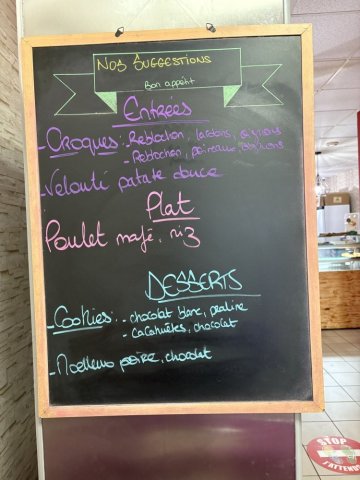 Nos Suggestions
Bon appétit
Entrées
- Croques: - Reblochon, lardons, oignons
- Reblochon, poireaux, oignons
- Velouté patate douce
Plat
Poulet mafé, riz
Desserts
- Cookies: - chocolat blanc, praline
- cacahuètes, chocolat
- Moelleux poire, chocolat
STOP
J'ATTENDS